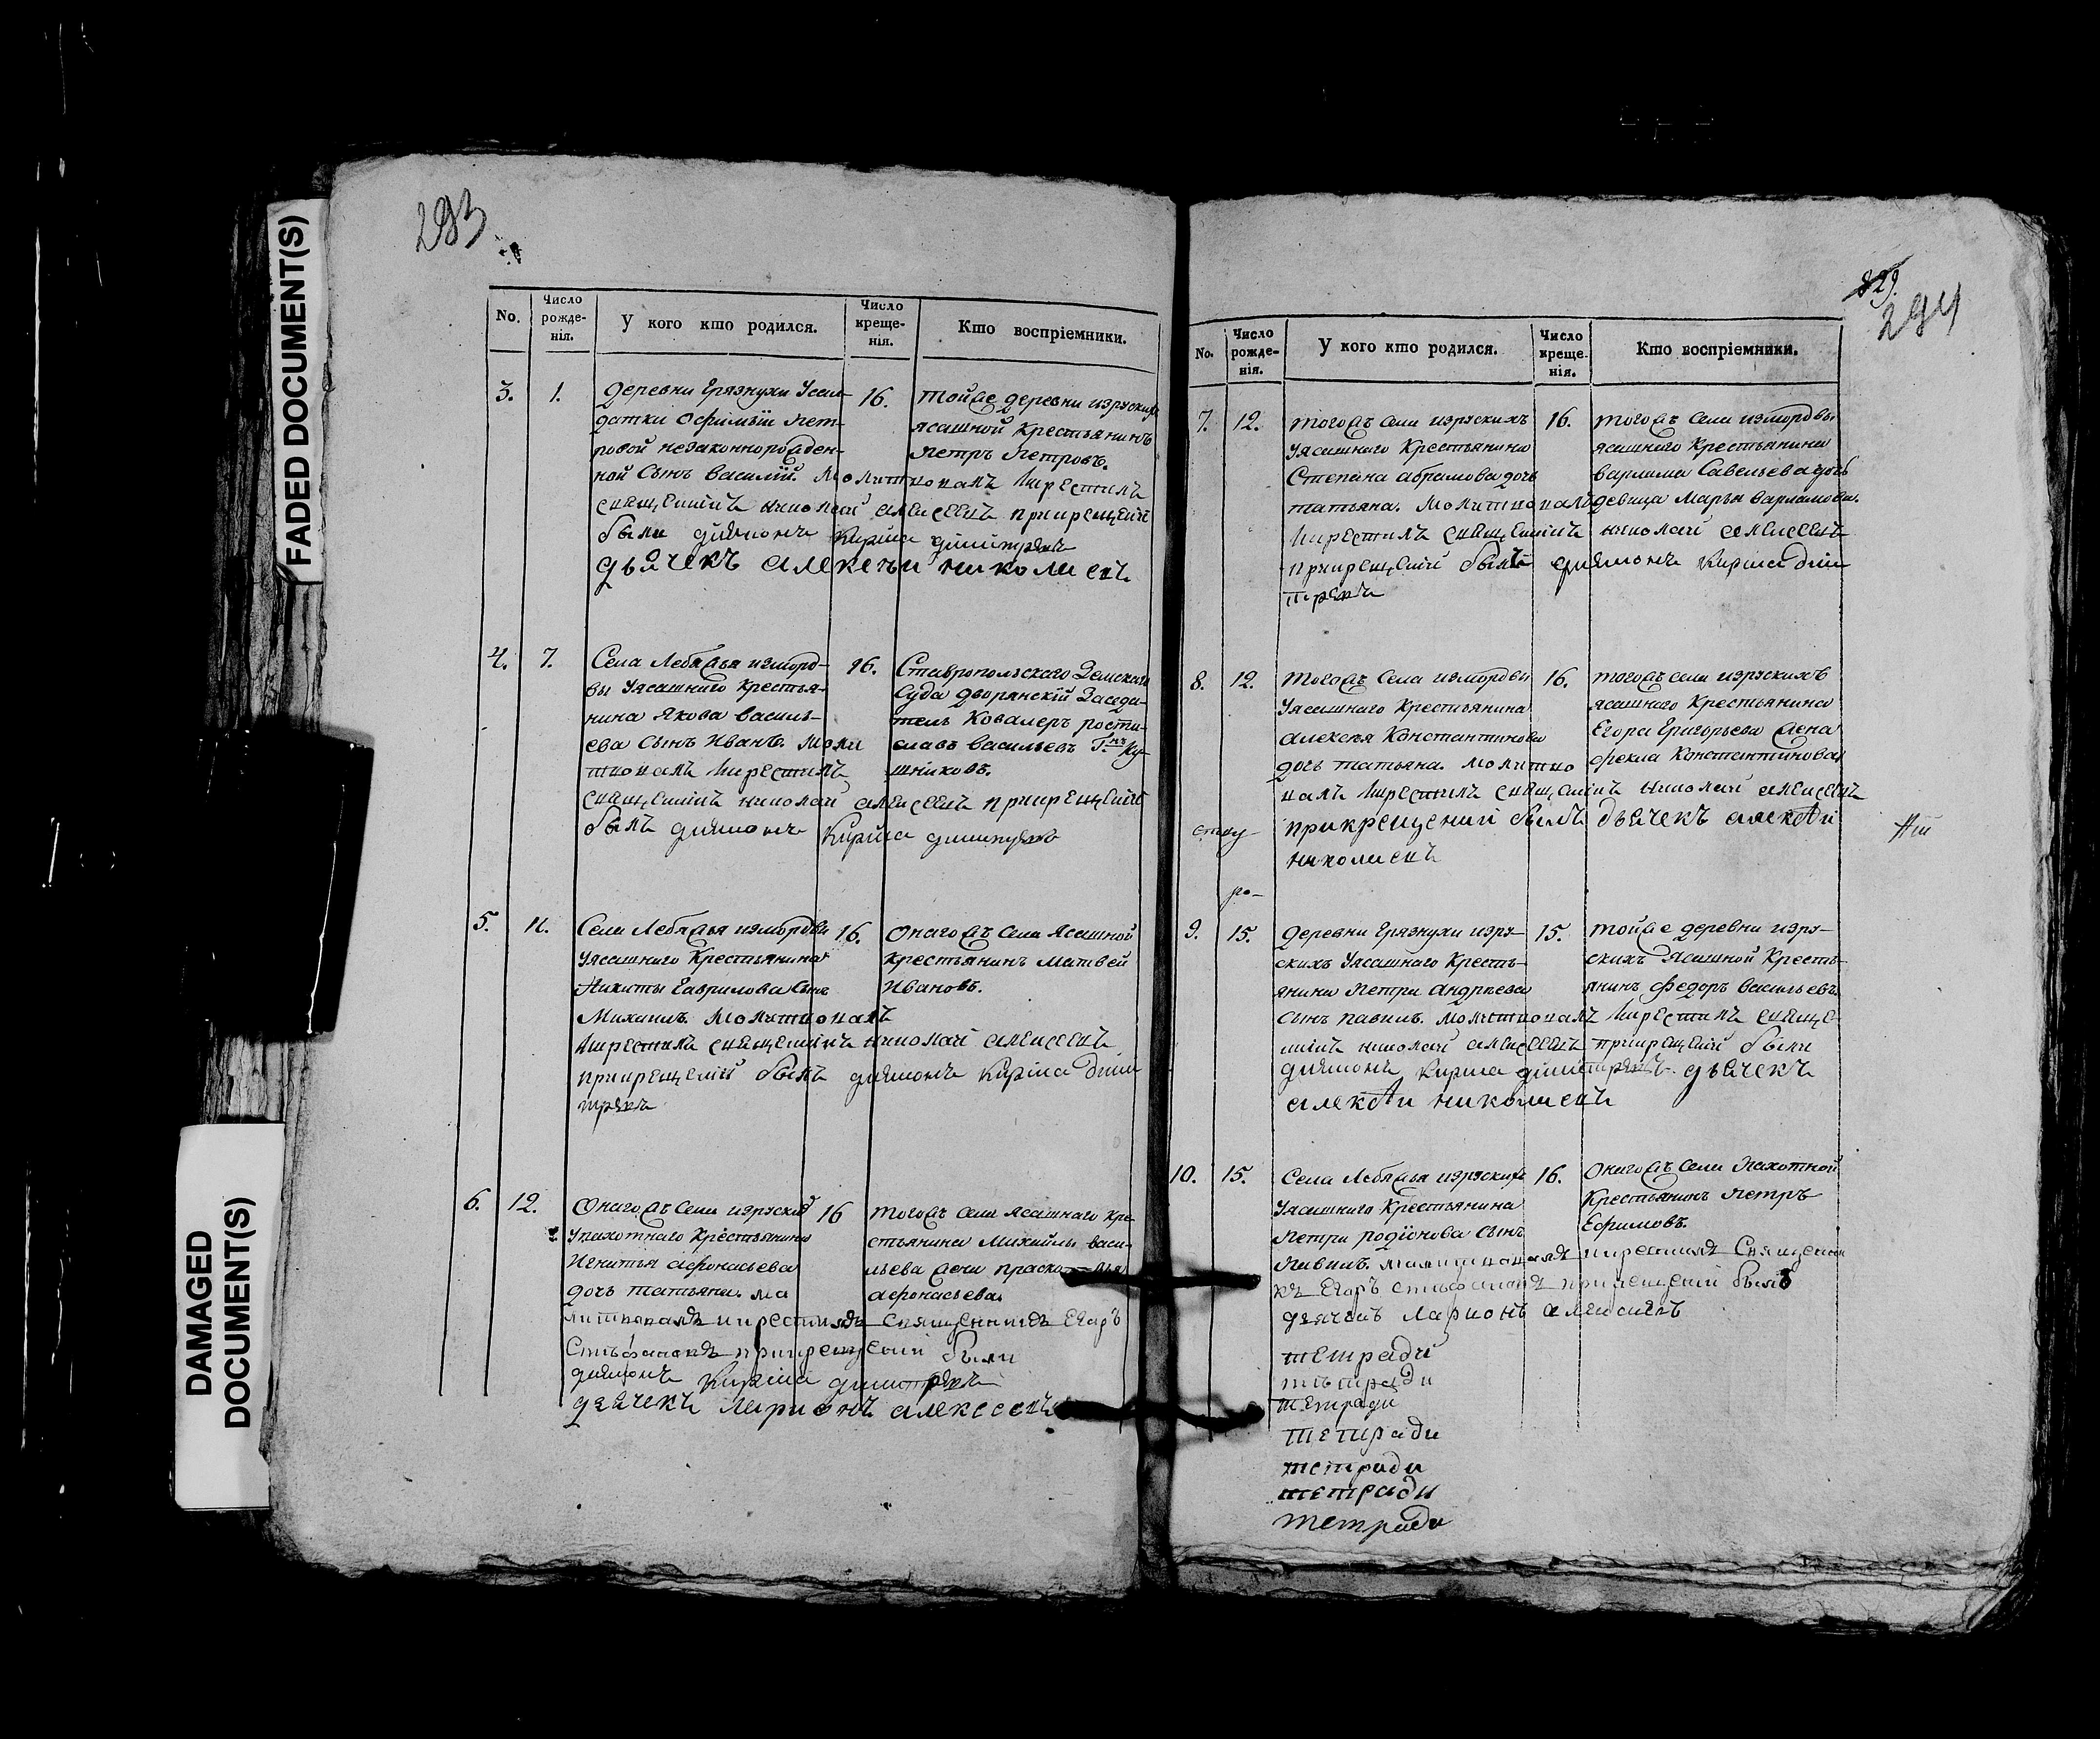 FADED DOCUMENT(S)
DAMAGED
DOCUMENT(S)
293
No.
Число рожде-нія.
У кого кто родился.
Число креще-нія.
Кто воспріемники.
3. 1.
деревни Грязнухи Усол-
датки Офимьи Пет-
ровой незаконнорожден-
ной сынъ Василій. Молитвовалъ и крестилъ
священникъ николай алексеевъ прикрещеніи
были дияконъ Кирила димитревъ
дьячекъ алексеи николаевъ
16.
тойже деревни изруских
ясашной крестьянинъ
Петръ Петровъ.
4. 7.
Села Лебяжья измord-
вы Уясашнаго крестья-
нина Якова василь-
ева сынъ Иванъ. моли
твовалъ и крестилъ
священникъ николай алексеевъ прикрещеніи
былъ дияконъ Кирила димитревъ
16.
Ставропольскаго Земскаго
Суда дворянскій Заседа-
тель Ковалеръ рости-
славъ васильевъ Г.нъ
5. 11.
Села Лебяжья измордвы
Уясашнаго Крестьянина
Никиты Гаврилова сынъ
Михаилъ. молитвовалъ
и крестилъ священникъ николай алексеевъ
прикрещеніи былъ дияконъ Кирила дими
тревъ
16.
Онагожъ села Ясашной
крестьянинъ Матвей
Ивановъ.
6. 12.
Онагожъ села изруских
Упахотнаго крестьянина
Игнатья афонасьева
дочь татьяна. мо
литвовалъ и крестилъ священникъ Егоръ
Стефановъ прикрещеніи были
дияконъ Кирила димитревъ
дьячекъ Ларионъ алексеевъ
16
тогожъ села ясашнаго кре-
стьянина Михайлы васи-
льева жена прасковья
афонасьева.
829.
294
No.
Число рожде-нія.
У кого кто родился.
Число креще-нія.
Кто воспріемники.
7. 12.
тогожъ села изрускихъ
Уясашнаго Крестьянина
Степана абрамова дочь
татьяна. молитвовалъ
и крестилъ священникъ николай алексеевъ
прикрещеніи былъ дияконъ Кирила дими
тревъ
16.
тогожъ села измордвы
ясашнаго Крестьянина
варлама Савельева дочь
девица марья варламова.
8. 12.
тогожъ Села измордвы
Уясашнаго Крестьянина
алексея Константинова
дочь татьяна. молитво
валъ и крестилъ священникъ николай алексеевъ
прикрещении былъ дьячекъ алексѣи
николаевъ
16.
тогожъ села изрускихъ
ясашнаго крестьянина
Егора Григорьева жена
фекла Константинова
ро-
9. 15.
деревни Грязнухи изру-
скихъ Уясашнаго Кресть-
янина Петра Андреева
сынъ павилъ. молитвовалъ и крестилъ свяще-
нникъ николай алексеевъ прикрещеніи были
дияконъ Кирила димитревъ. дьячекъ
алексѣи николаевъ
15.
тойже деревни изру-
скихъ Ясашной Кресть-
янинъ федоръ васильевъ.
10. 15.
Села Лебяжья изруских
Уясашнаго Крестьянина
Петра родіонова сынъ
Павилъ. молитвовалъ и крестилъ Священни
къ Егоръ стефановъ прикрещеніи былъ
дьячекъ Ларионъ алексиевъ
16.
Онагожъ села Пахотной
Крестьянинъ Петръ
Ефимовъ.
тетради
тетради
тетради
тетради
тетради
тетради
тетради